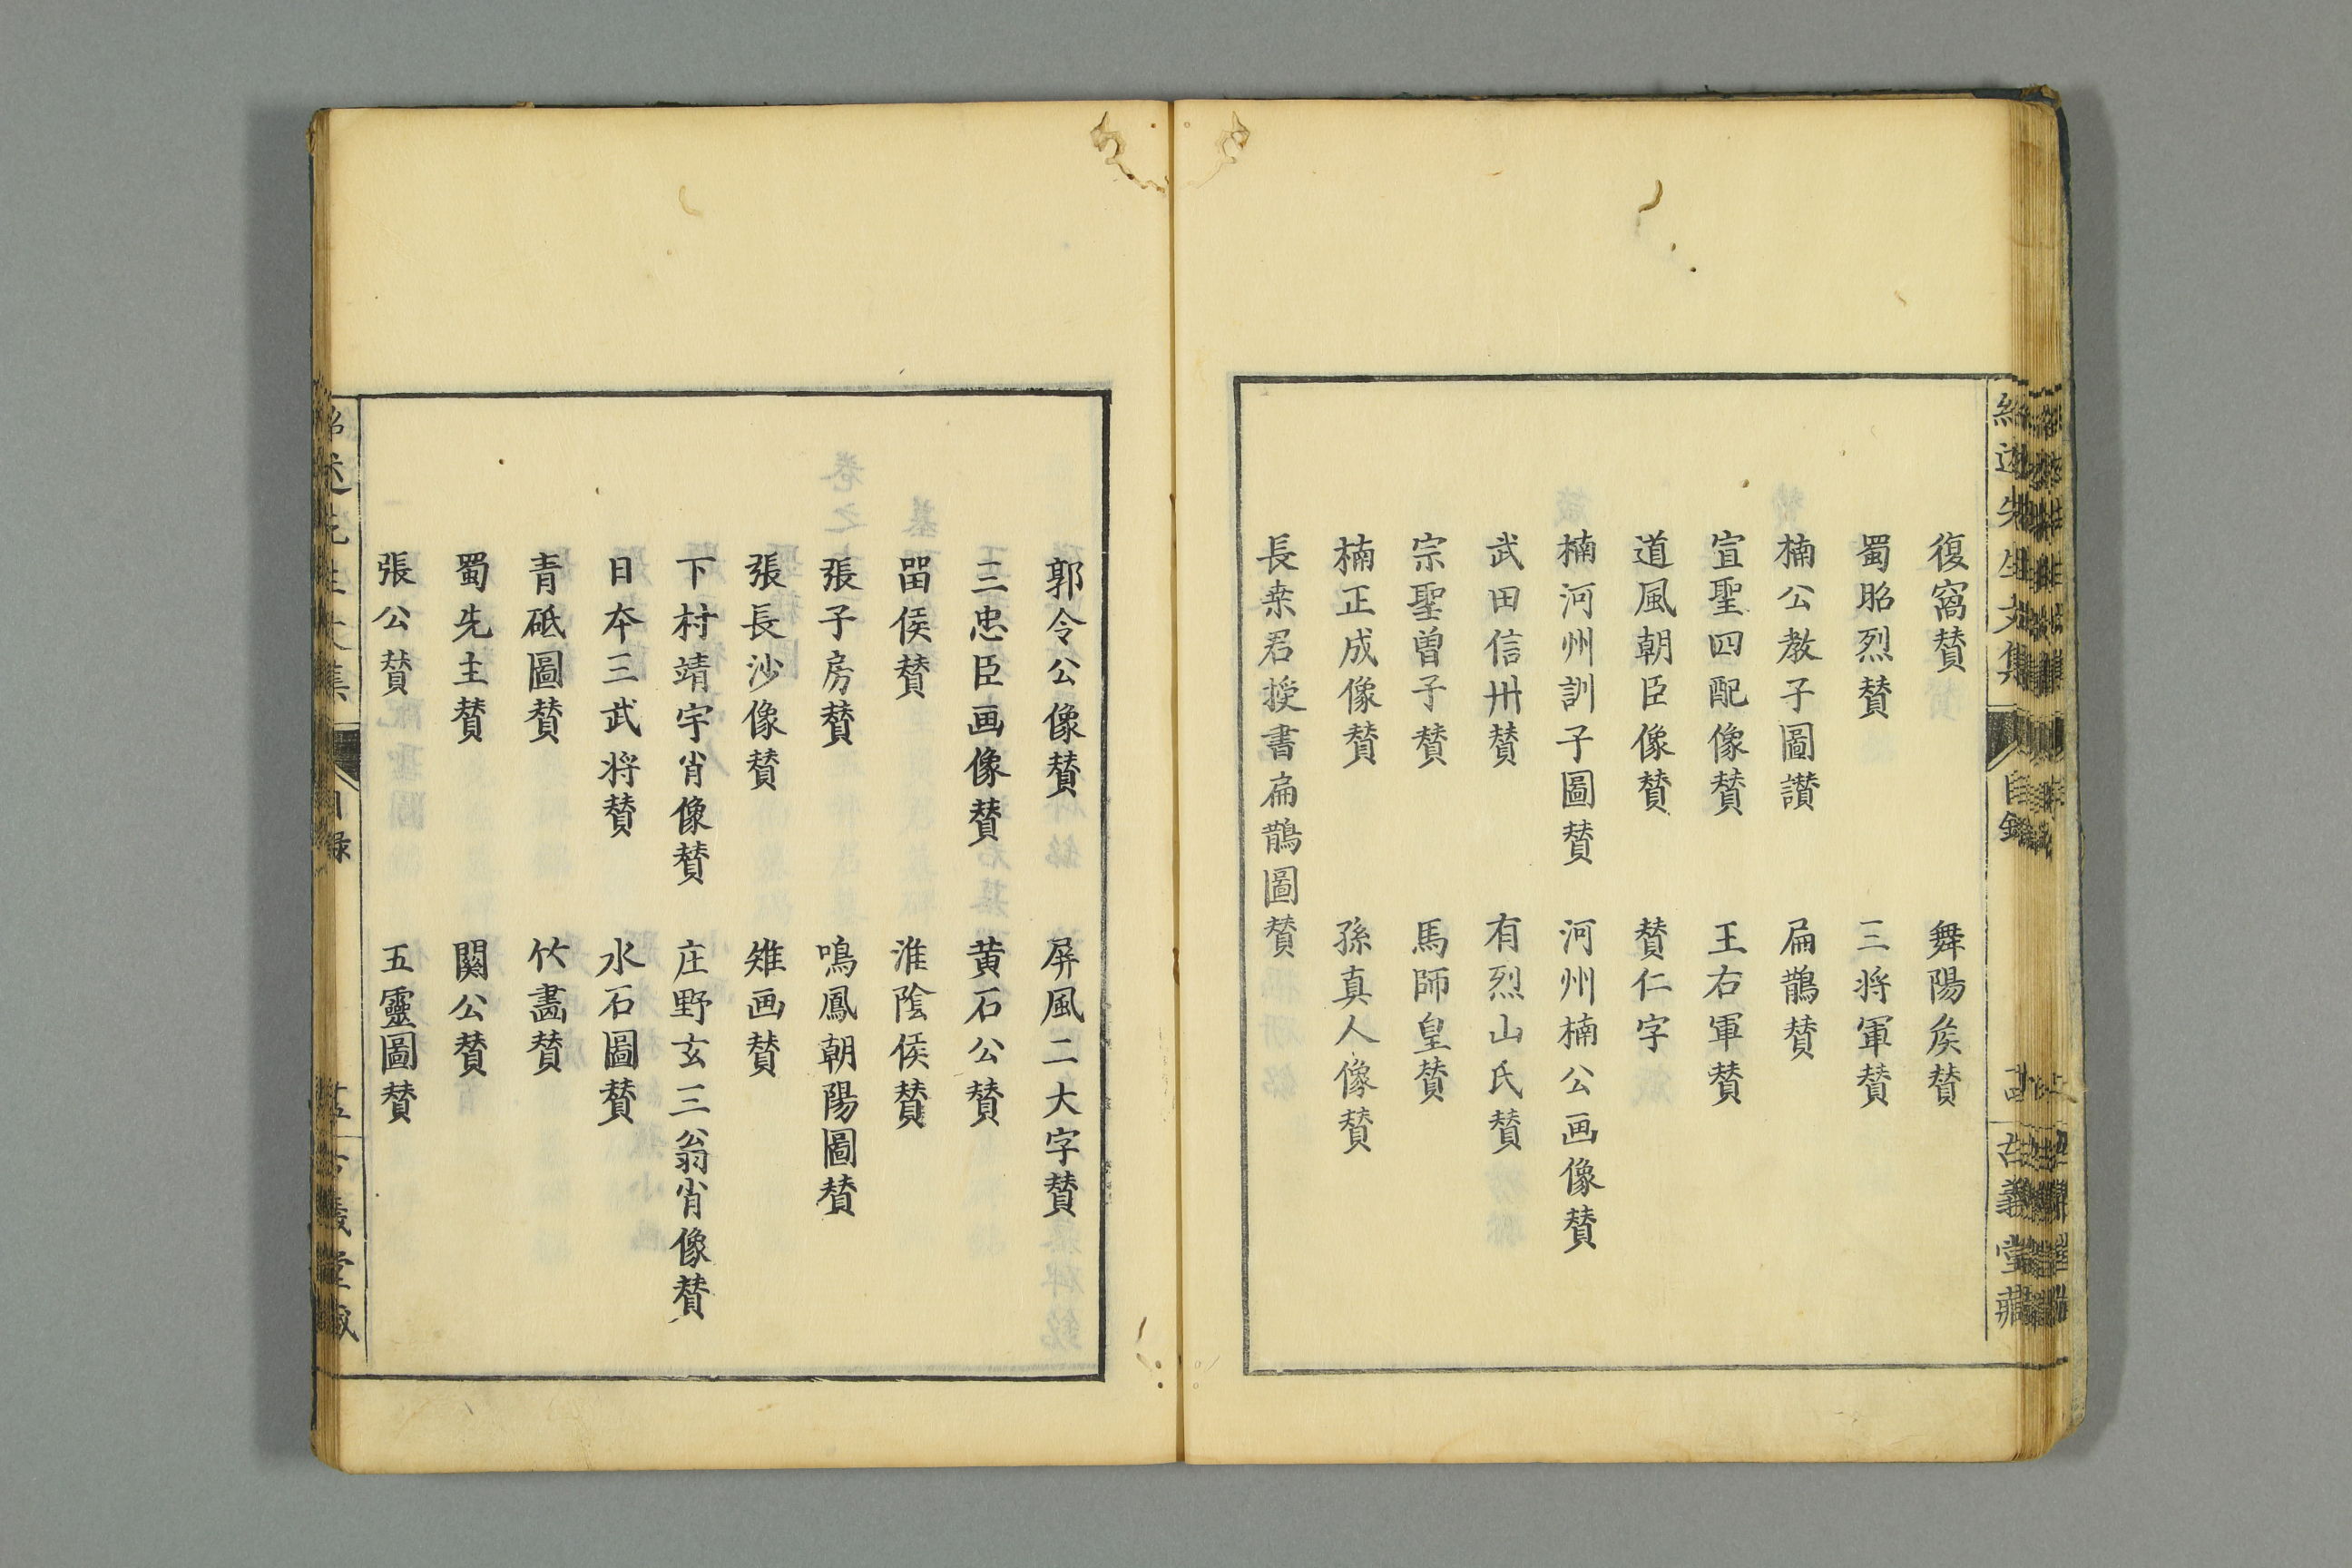 復窩賛　舞陽矦賛
蜀昭烈賛　三将軍賛
楠公教子圖讃　扁鵲賛
宣聖四配像賛　王右軍賛
道風朝臣像賛　賛仁字
楠河州訓子圖賛　河州楠公画像賛
武田信卅賛　有烈山氏賛
宗聖曽子賛　馬師皇賛
楠正成像賛　孫真人像賛
長桒君授書扁鵲圖賛
郭令公像賛　屏風二大字賛
三忠臣画像賛　黄石公賛
畱侯賛　淮陰侯賛
張子房賛　鳴鳳朝陽圖賛
張長沙像賛　雉画賛
下村靖宇肖像賛　庄野玄三翁肖像賛
日夲三武将賛　水石圖賛
青砥圖賛　竹畵賛
蜀先主賛　関公賛
張公賛　五靈圖賛
紹述先生文集　目録　古義堂藏
述先生文集　目録　古義堂藏